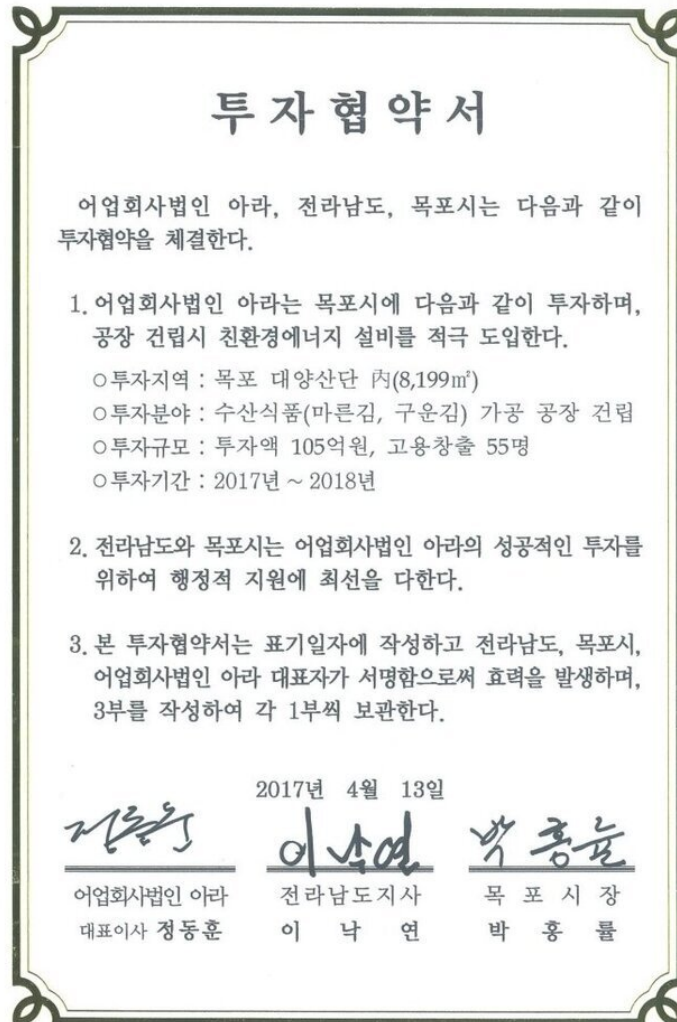 투자협약서
어업회사법인 아라, 전라남도, 목포시는 다음과 같이
투자협약을 체결한다.
1. 어업회사법인 아라는 목포시에 다음과 같이 투자하며,
공장 건립시 친환경에너지 설비를 적극 도입한다.
○투자지역 : 목포 대양산단 內(8,199㎡)
○투자분야 : 수산식품(마른김, 구운김) 가공 공장 건립
○투자규모 : 투자액 105억원, 고용창출 55명
○투자기간 : 2017년 ~ 2018년
2. 전라남도와 목포시는 어업회사법인 아라의 성공적인 투자를
위하여 행정적 지원에 최선을 다한다.
3. 본 투자협약서는 표기일자에 작성하고 전라남도, 목포시,
어업회사법인 아라 대표자가 서명함으로써 효력을 발생하며,
3부를 작성하여 각 1부씩 보관한다.
2017년 4월 13일
정동훈 이낙연 박홍률
어업회사법인 아라 전라남도지사 목 포 시 장
대표이사 정동훈 이 낙 연 박 홍 률